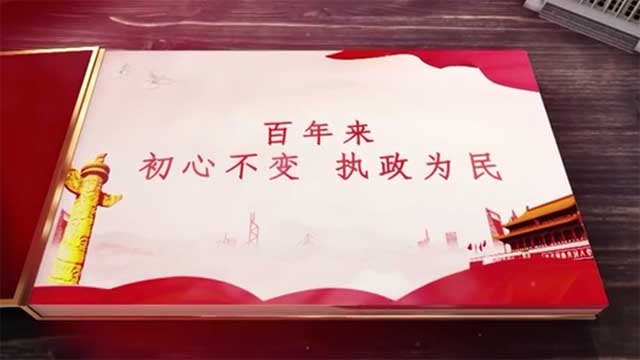 百年来
初心不变 执政为民